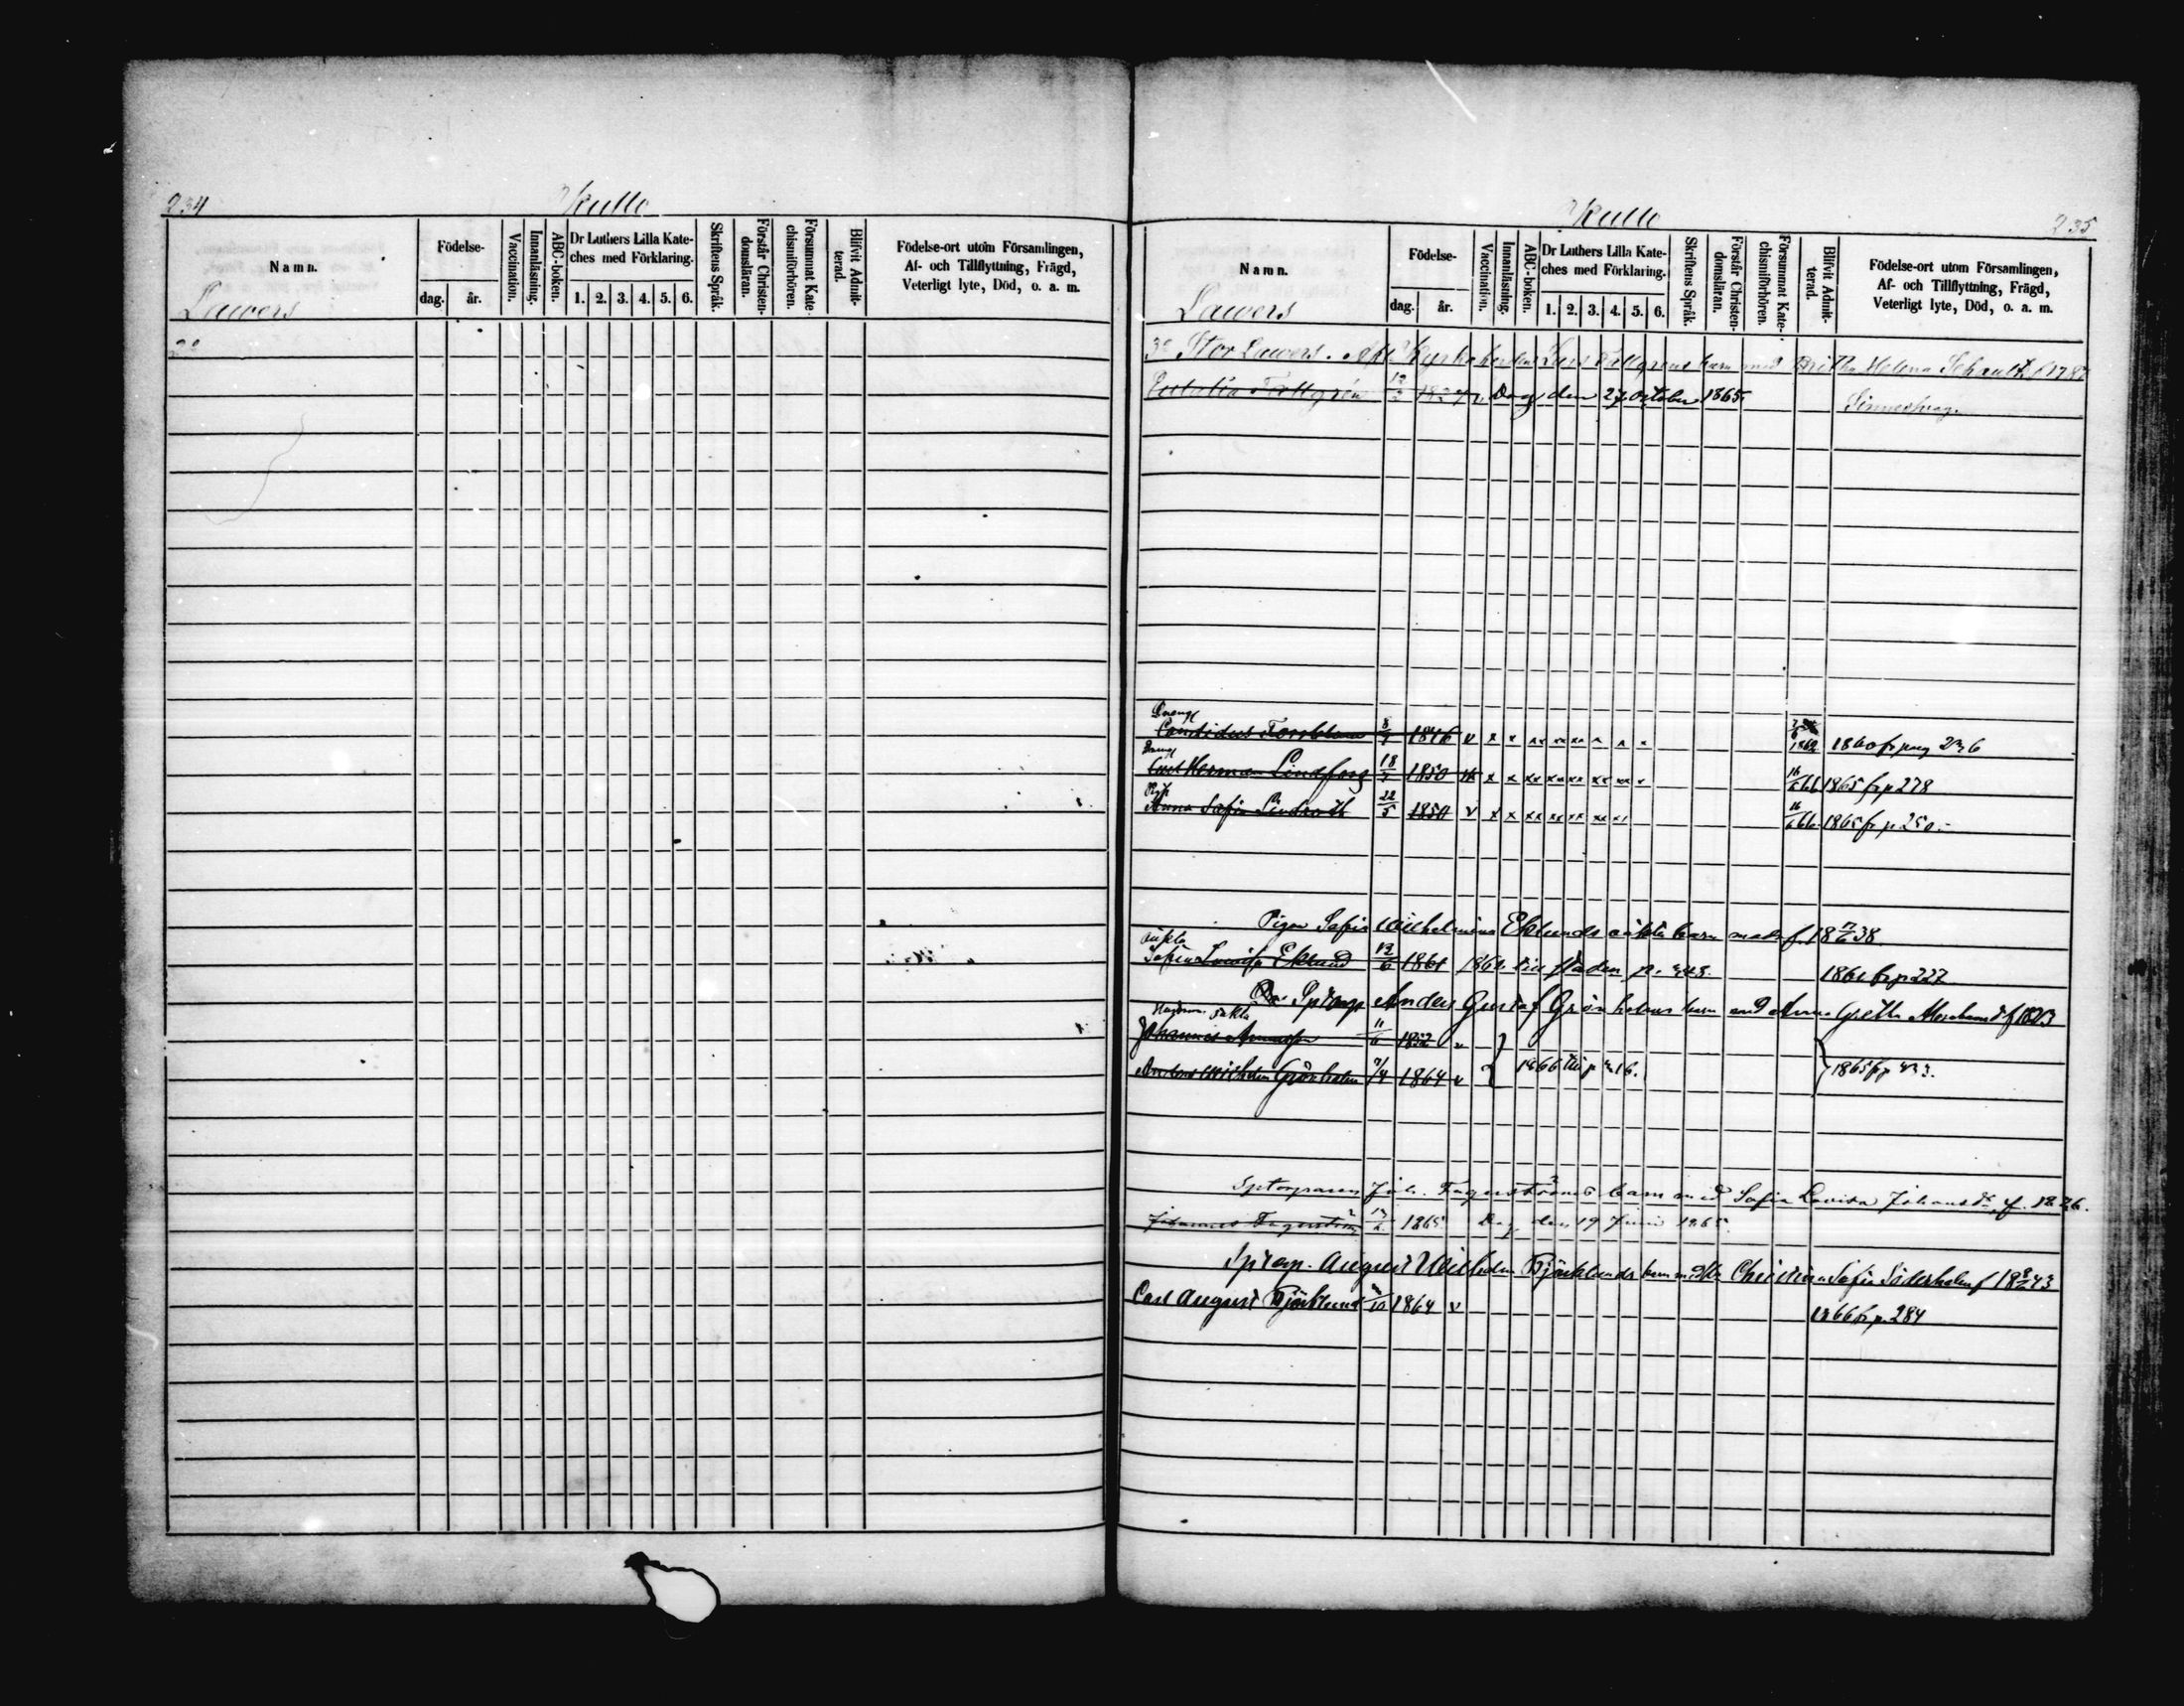 234
Skulle
Namn.
Lawers
Födelse-
dag.
år.
Vaccination.
Innanläsning.
ABC-boken.
Dr Luthers Lilla Kate-
ches med Förklaring.
1. 2. 3. 4. 5. 6.
Skriftens Språk.
Förstår Christen-
domsläran.
Försummat Kate-
chismiförhören.
Blifvit Admit-
terad.
Födelse-ort utom Församlingen,
Af- och Tillflyttning, Frägd,
Veterligt lyte, Död, o. a. m.
2o
Skulle
235
Namn.
Lawers
Födelse-
dag.
år.
Vaccination.
Innanläsning.
ABC-boken.
Dr Luthers Lilla Kate-
ches med Förklaring.
1. 2. 3. 4. 5. 6.
Skriftens Språk.
Förstår Christen-
domsläran.
Försummat Kate-
chismiförhören.
Blifvit Admit-
terad.
Födelse-ort utom Församlingen,
Af- och Tillflyttning, Frägd,
Veterligt lyte, Död, o. a. m.
3o Stor Lawers. Lars Tallgrens barn med Britha Helena Schault f 178
Tallgrén 1827 v. Dog den 27 october 1865. Sinnessvag.
Dreng
Candidus Forsblom 8/9 1846 v x x xx xx xx x x x 1862 1860 fr pag 236
Dreng
Carl Herman Lindfors 18/7 1850 x x xx xx xx xx xx x 16/6 66 1865 fr p 278
Pig
Anna Sofia Lindroth 22/5 1850 v x x xx xx xx xx x 16/6 66 1865 fr p 250.
Pigan Sofia Wilhelmina Eklunds oäkta barn f. 18 17/6 38
oäkta
Sofia Lovisa Eklund 12/6 1861 till staden p. 1861 fr p 227
Sptorp Anders Gustaf Grönholms barn med Anna Greta f 1823
oäkta
Johannes 11/6 1852 v
Anders Wilhelm Grönholm 7/4 1864 v } 1866 till p 216. } 1865 fr p 233.
Sptorparen Joh. Fagerströms barn med Sofia Lovisa Johansdr f. 1826.
Johannes Fagerström 13/6 1865 Dog den 19 Juni 1865.
Sptorp. August Wilhelm Björklunds barn med Christina Sofia Söderholm f 18 43
Carl August Björklund /10 1864 v 1866 fr p. 284